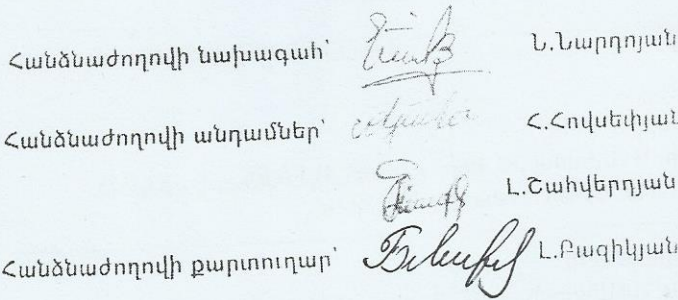 Հանձնաժողովի նախագահ՝ Ն.Նարդոյան
Հանձնաժողովի անդամներ՝ Հ.Հովսեփյան
Լ.Շահվերդյան
Հանձնաժողովի քարտուղար՝ Լ.Բազիկյան